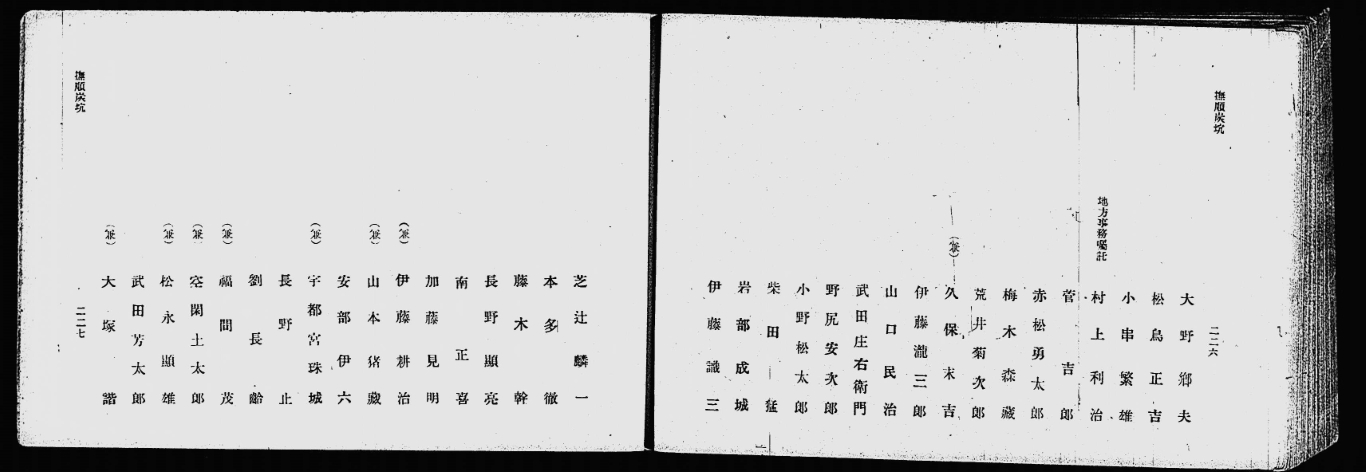 撫順炭坑
二二六
大野鄉夫
松鳥正吉
小串繁雄
地方事務囑託
村上利治
菅吉郎
赤松勇太郎
梅木森藏
荒井菊次郎
(兼)久保末吉
伊藤瀧三郎
山口民治
武田庄右衛門
野尻安次郎
小野松太郎
柴田猛
岩部成城
伊藤識三
芝辻麟一
本多徹
藤木幹
長野顯亮
南正喜
加藤見明
(兼)伊藤耕治
(兼)山本猪藏
安部伊六
(兼)宇都宮珠城
長野止
劉長齡
(兼)福間茂
(兼)空閑土太郎
(兼)松永顯雄
武田芳太郎
(兼)大塚諧
撫順炭坑
二二七